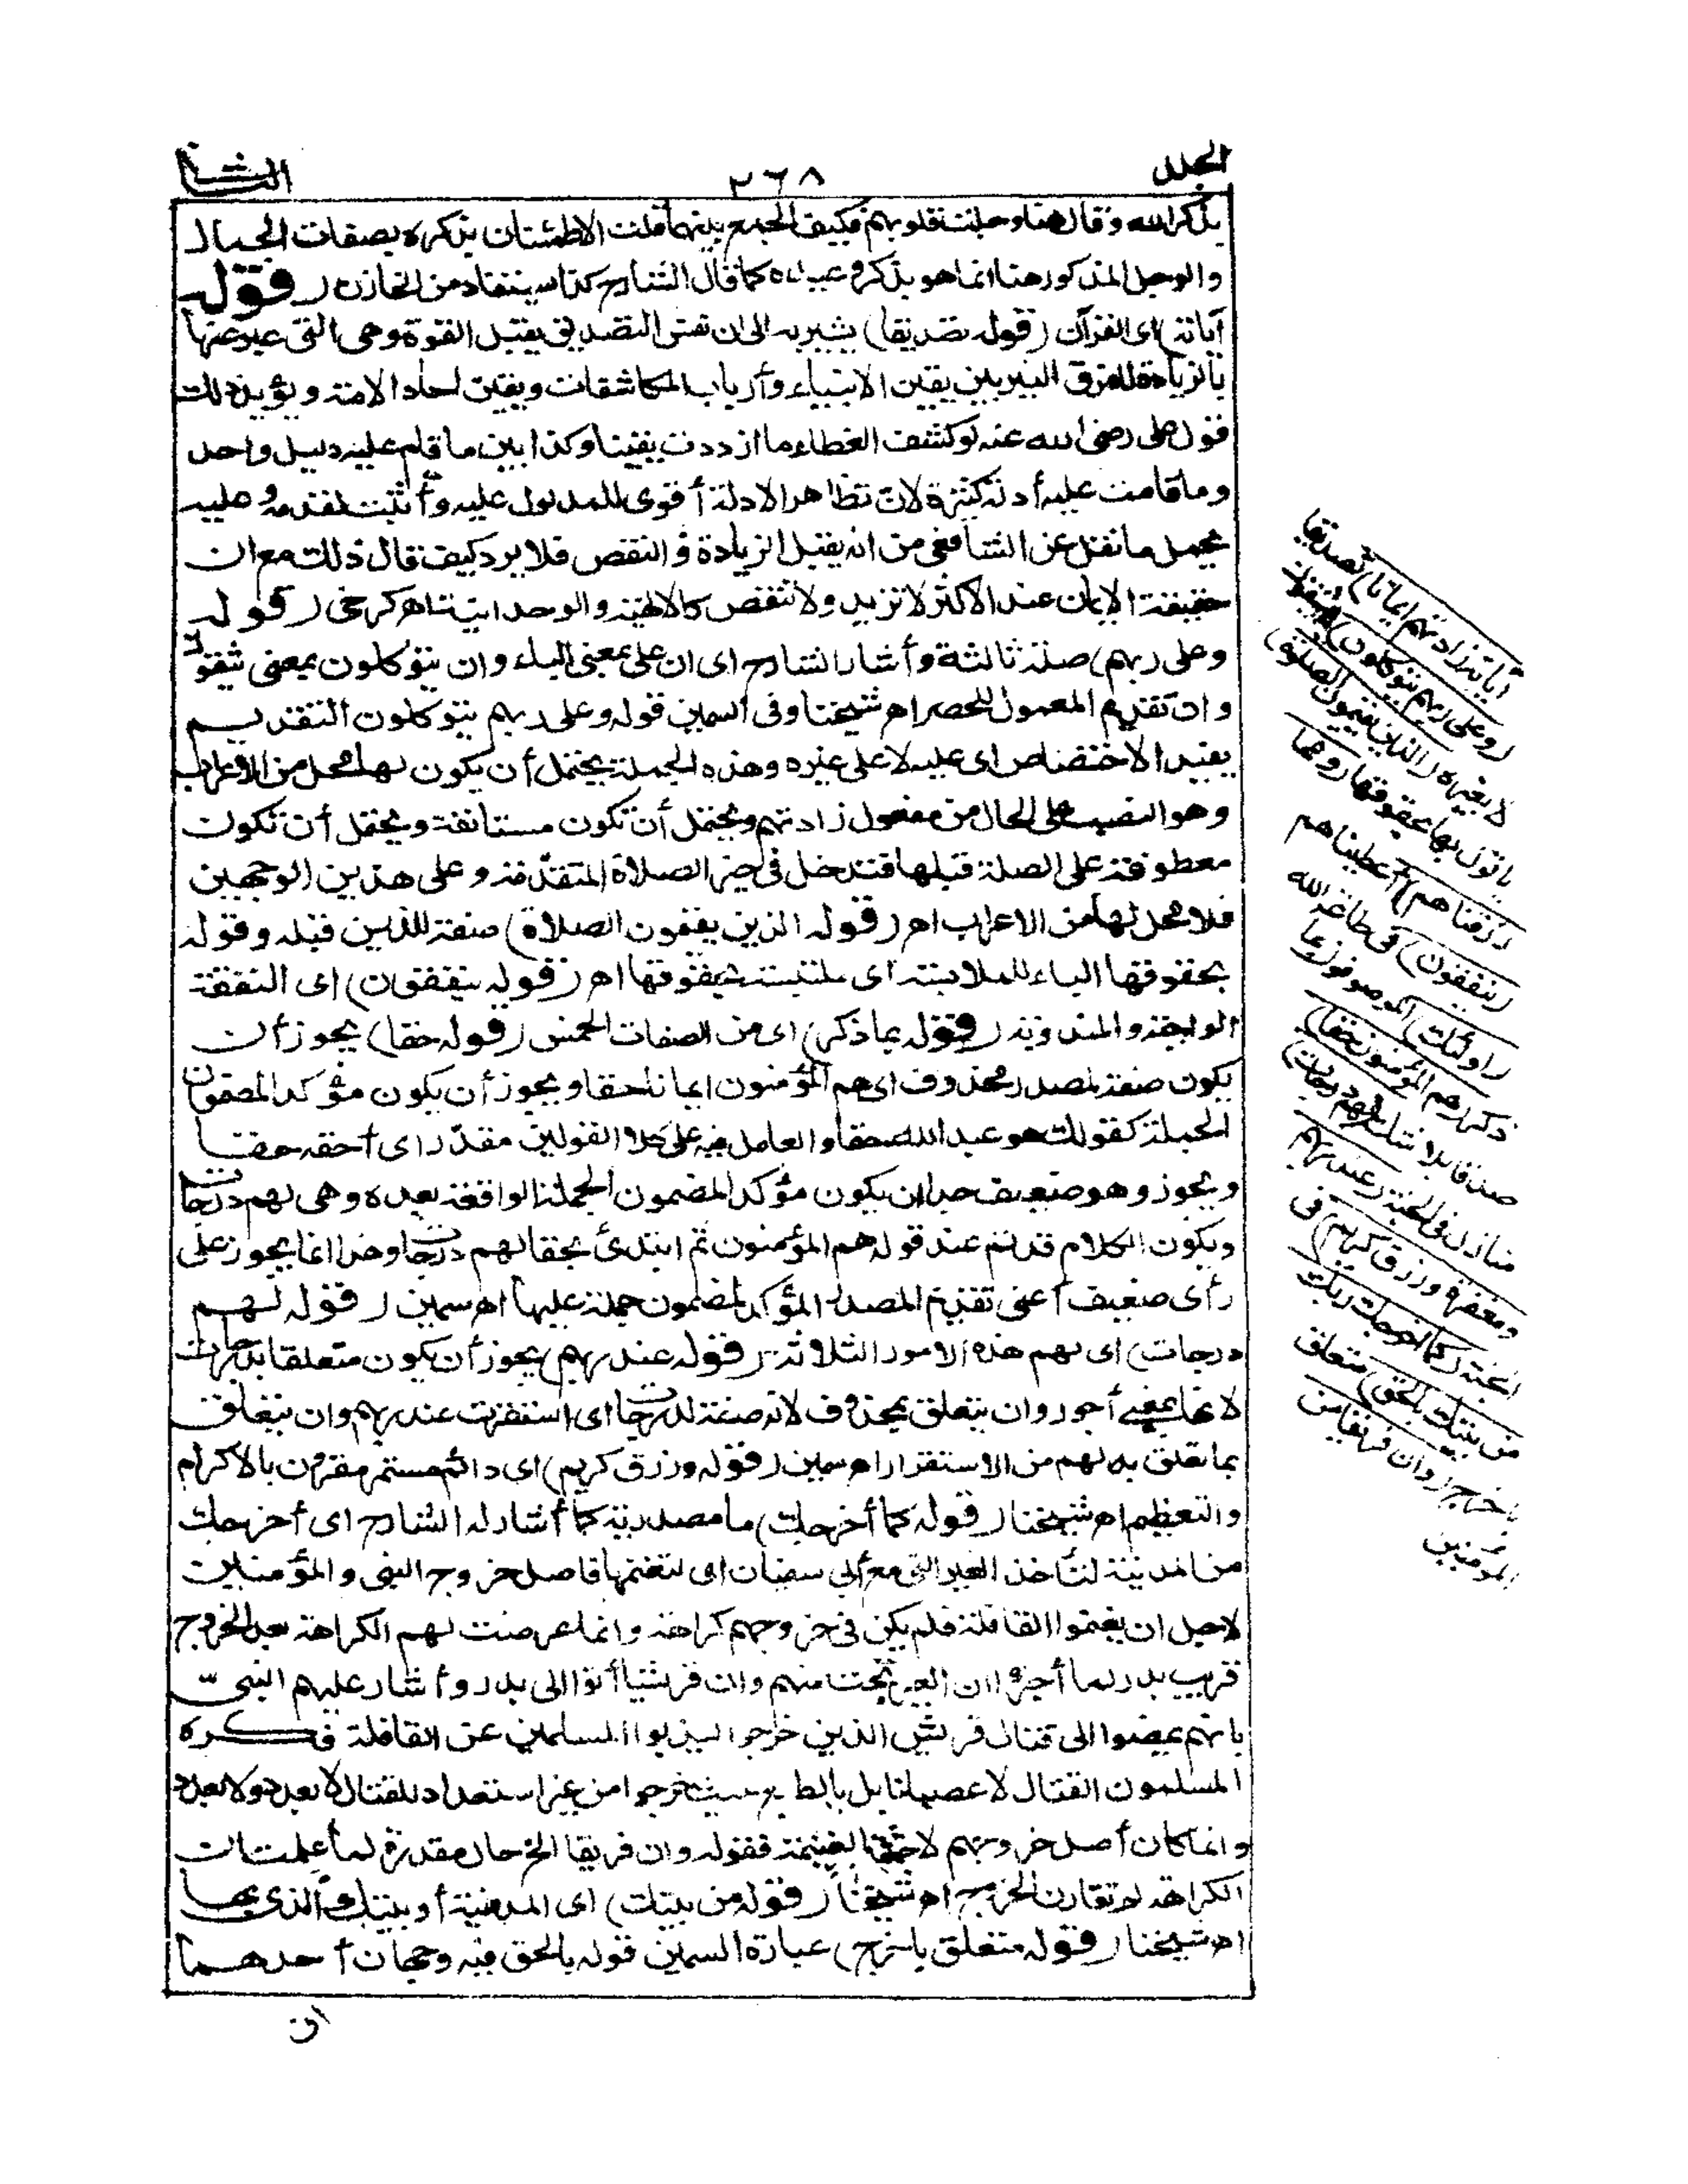 الجلد
٢٦٨
الثانى
بذكر الله وقال هنا وجلت قلوبهم فكيف الجمع بينهما قلت الاطمئنان بذكره بصفات الجمال
والوجل المذكور هنا انما هو بذكر وعيده كما قال الشارح كذا يستفاد من الخازن (قوله
آياته) اى القرآن (قوله تصديقا) يشير به الى ان نفس التصديق يقبل القوة وهى التى عبر عنها
بالزيادة للفرق النير بين يقين الانبياء وأرباب المكاشفات ويقين احاد الامة ويؤيد ذلك
قول على رضى الله عنه لو كشف الغطاء ما ازددت يقينا وكذا بين ما قام عليه دليل واحد
وما قامت عليه أدلة كثيرة لان تظاهر الادلة أقوى للمدلول عليه وأثبت لقدمه وعليه
يحمل ما نقل عن الشافعى من انه يقبل الزيادة والنقص فلا يرد كيف قال ذلك مع ان
حقيقة الايمان عند الاكثر لا تزيد ولا تنقص كالالهية والوحدانية اهـ كرخى (قوله
وعلى ربهم) صلة ثالثة وأشار الشارح اى ان على بمعنى الباء وان يتوكلون بمعنى يثقون
وان تقديم المعمول للحصر اهـ شيخنا وفى السمين قوله وعلى ربهم يتوكلون التقديم
يفيد الاختصاص اى عليه لا على غيره وهذه الجملة يحتمل أن يكون لها محل من الاعراب
وهو النصب على الحال من مفعول زادتهم ويحتمل أن تكون مستانفة ويحتمل أن تكون
معطوفة على الصلة قبلها فتدخل فى حيز الصلاة المتقدّمة وعلى هذين الوجهين
فلا محل لها من الاعراب اهـ (قوله الذين يقيمون الصلاة) صفة للذين قبله وقوله
بحقوقها الباء للملابسة اى ملتبسة بحقوقها اهـ (قوله ينفقون) اى النفقة
الواجبة والمندوبة (قوله بما ذكر) اى من الصفات الخمس (قوله حقا) يجوز أن
يكون صفة لمصدر محذوف اى هم المؤمنون ايمانا حقا ويجوز أن يكون مؤكدا لمضمون
الجملة كقولك هو عبد الله حقا والعامل فيه على كلا القولين مقدّر اى أحقه حقا
ويجوز وهو ضعيف جدا ان يكون مؤكدا لمضمون الجملة الواقعة بعده وهى لهم درجات
ويكون الكلام قد تم عند قوله هم المؤمنون ثم ابتدئ بحقا لهم درجات وهذا انما يجوز على
رأى ضعيف أعنى تقديم المصدر المؤكد لمضمون جملة عليها اهـ سمين (قوله لهم
درجات) اى لهم هذه الامور الثلاثة (قوله عند ربهم) يجوز أن يكون متعلقا بدرجات
لانها بمعنى أجور وان يتعلق بمحذوف لانه صفة لدرجات اى استقرت عند ربهم وان يتعلق
بما تعلق به لهم من الاستقرار اهـ سمين (قوله ورزق كريم) اى دائم مستمر مقرون بالاكرام
والتعظيم اهـ شيخنا (قوله كما أخرجك) ما مصدرية كما أشار له الشارح اى أخرجك
من المدينة لتأخذ العير التى مع أبى سفيان اى لتغنمها فاصل خروج النبى والمؤمنين
لاجل ان يغنموا القافلة فلم يكن فى خروجهم كراهة وانما عرضت لهم الكراهة بعد الخروج
قريب بدر لما أخبروا ان العير نجت منهم وان قريشا أتوا الى بدر وأشار عليهم النبىّ
بانهم يمضوا الى قتال قريش الذين خرجوا ليذبوا المسلمين عن القافلة فكره
المسلمون القتال لا عصيانا بل بالطبع حيث خرجوا من غير استعداد للقتال لا بعدد ولا بعدد
وانما كان أصل خروجهم لاخذ الغنيمة فقوله وان فريقا الخ حال مقدرة لما علمت ان
الكراهة لم تقارن الخروج اهـ شيخنا (قوله من بيتك) اى المدينة أو بيتك الذى بها
اهـ شيخنا (قوله متعلق باخرج) عبارة السمين قوله بالحق فيه وجهان أحدهما
ان
آياته زادتهم ايمانا) تصديقا
(وعلى ربهم يتوكلون) به يثقون
لا بغيره (الذين يقيمون الصلوة)
ياتون بها بحقوقها (ومما
رزقناهم) أعطيناهم
(ينفقون) فى طاعة الله
(أولئك) الموصوفون بما
ذكر (هم المؤمنون حقا)
صدقا بلا شك (لهم درجات)
منازل فى الجنة (عند ربهم
ومغفرة ورزق كريم) فى
الجنة (كما أخرجك ربك
من بيتك بالحق) متعلق
باخرج (وان فريقا من
المؤمنين